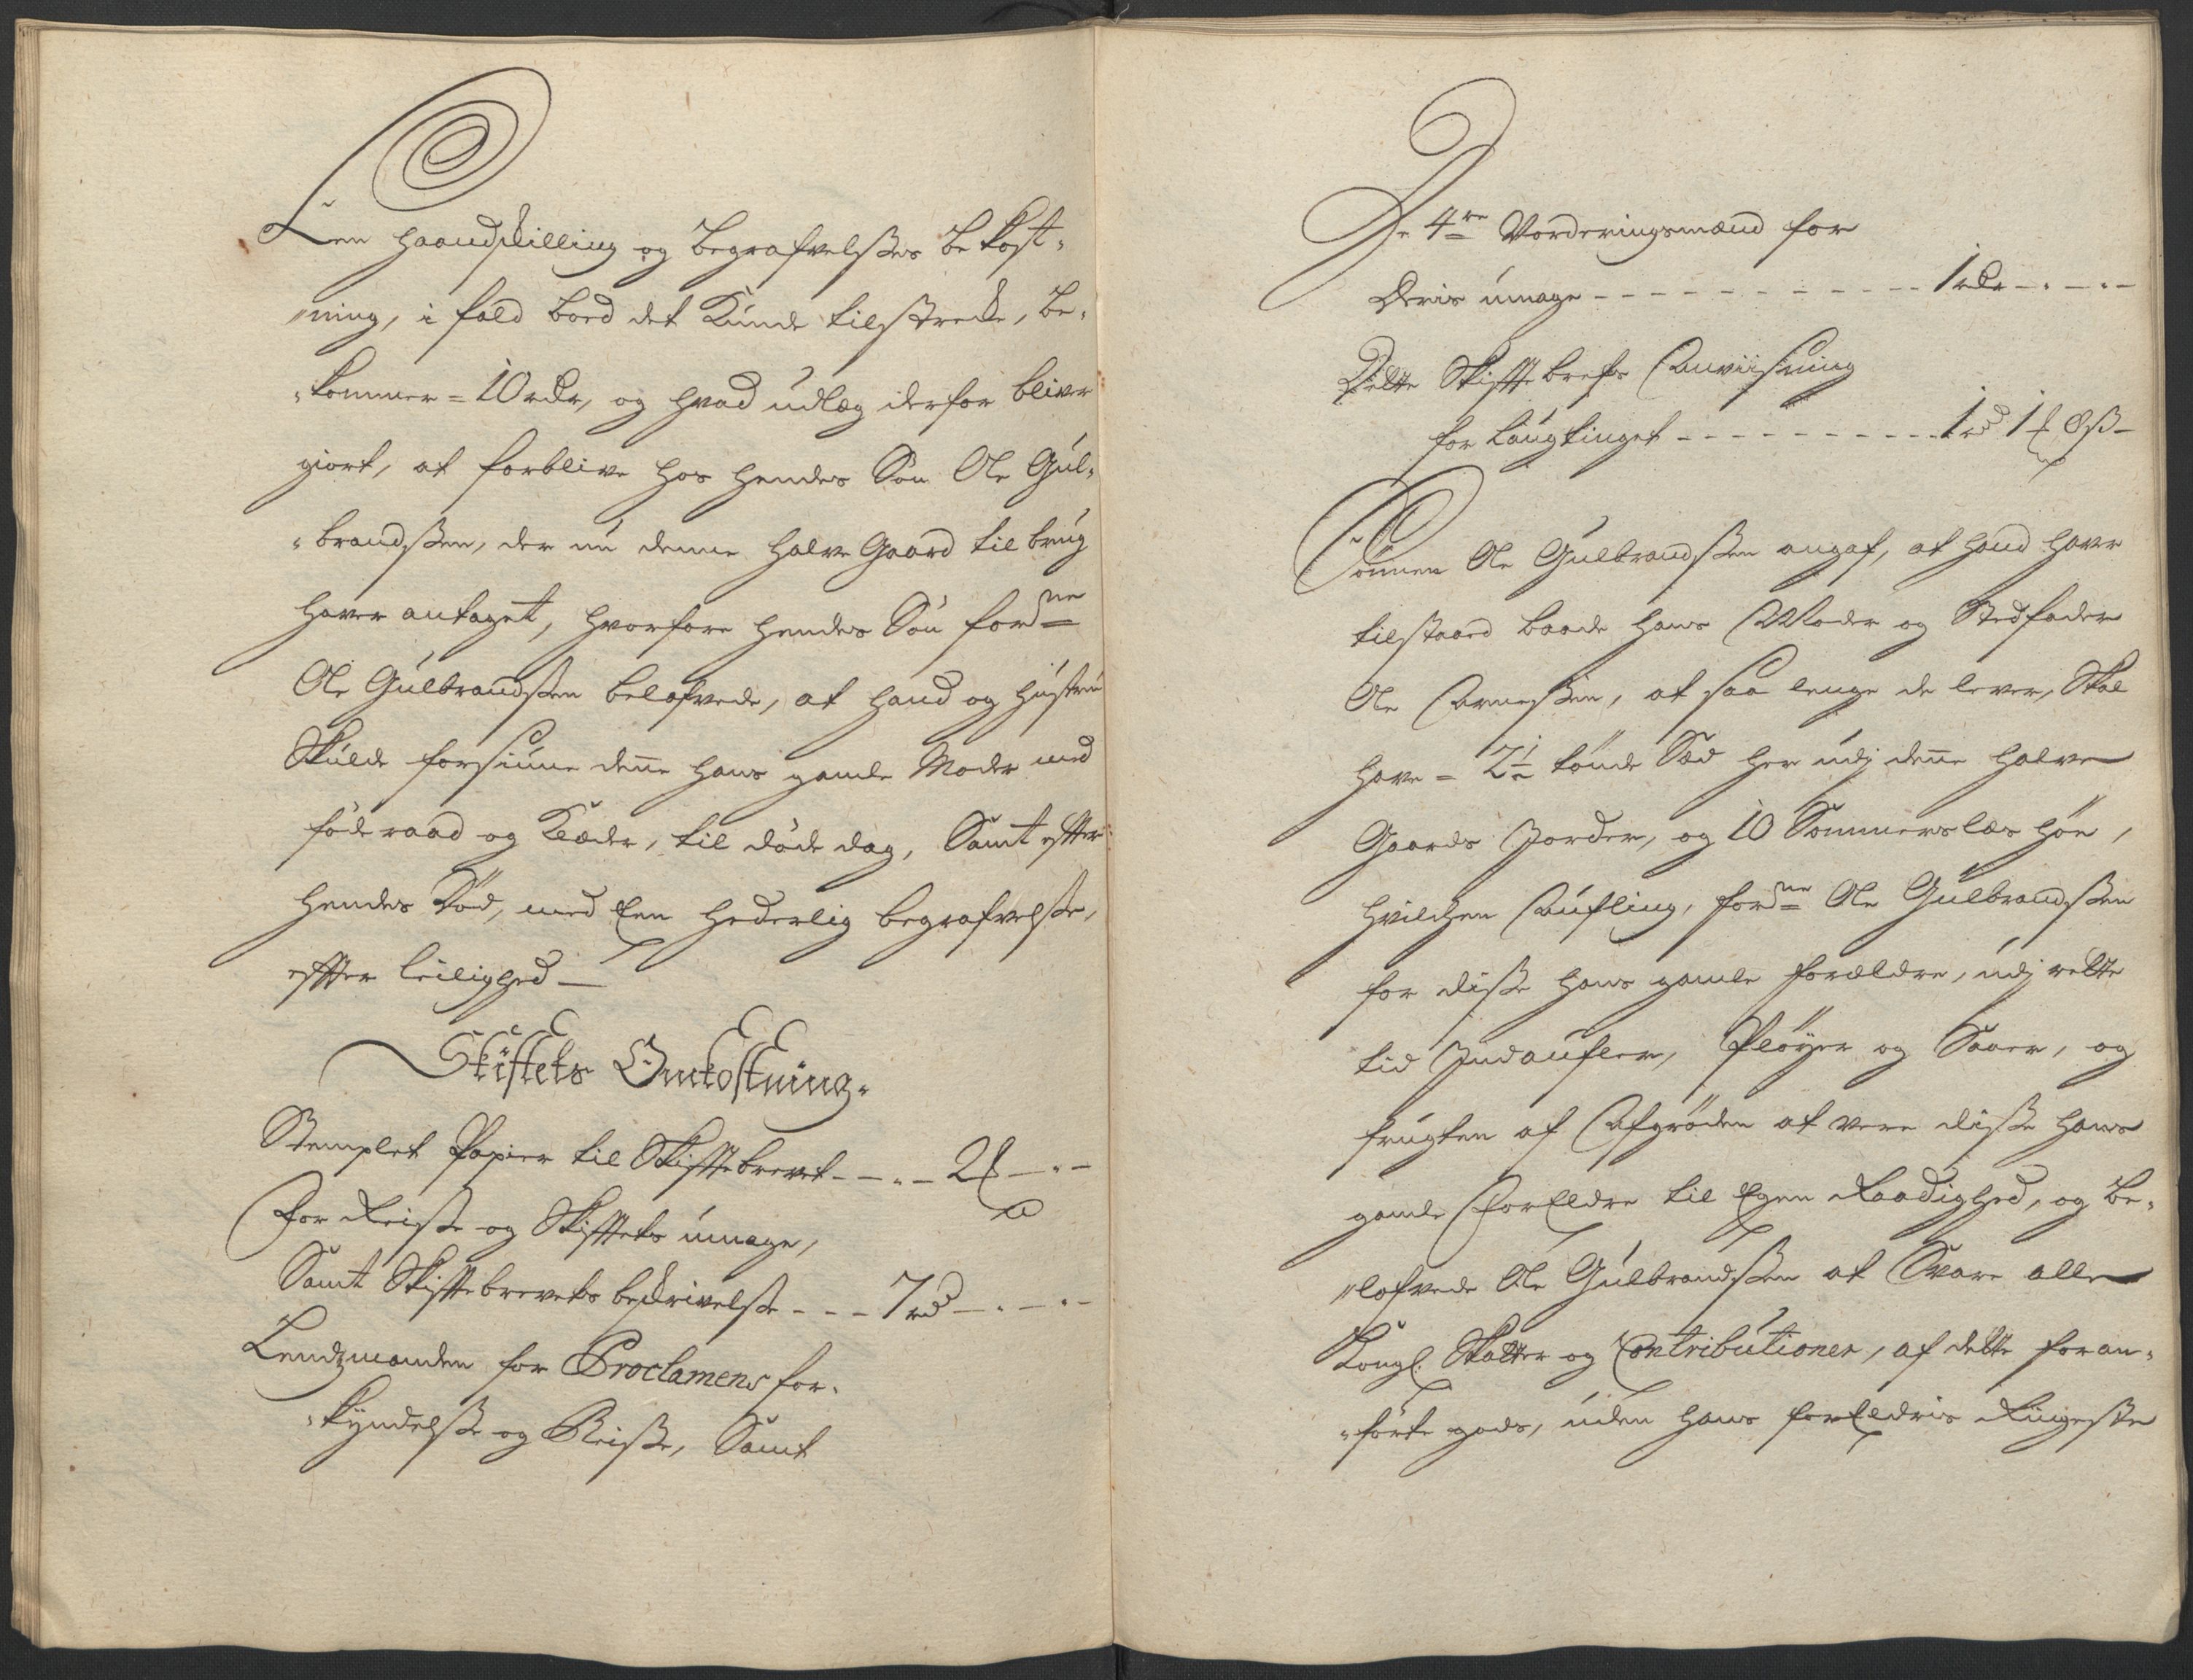 Een haandskilling og begrafvelsses bekost-
"ning, i fald boed det Kunde tilstrecke, be-
"kommer = 10 rdr, og hvad udlæg derfor bliver
giort, at forblive hos hendes Søn Ole Gul-
"brandssen, der nu denne halve Gaard til brug
haver antaget, hvorfore hendes Søn fordne
Ole Gulbrandssen belofvede, at hand og hustrue
Skulde forsiune denne hans gamle Moder med
føderaad og Klæder, til døde dag, Samt efter
hendes Død, med Een hederlig begrafvelsse,
effter leilighed —
Skiftets Omkostning.
Stemplet Papier til Skifftebrevet - - - - 2 -"-
For Reisse og Skifftets umage,
Samt Skifftebrevets beskrivelsse - - - 7 rd -"-"-
Lendsmanden for Proclamens for-
"kyndelsse og Reisse, Samt
De 4re Vorderingsmænd for
Deris umage - - - - - - - - - - - 1 rdr -"-"-
Dette Skifftebrefs Anviisning
for laugtinget - - - - - - - - - - 1 rd 1 8 ß -
Sønnen Ole Gulbrandssen angaf, at hand haver
tilstaaed baade hans Moder og Stedfader
Ole Arnessen, at saa lenge de lever, Skal
have = 2½ tønde Sæd her udj denne halve
Gaards Jorder, og 10 Sommerslæs høe,
hvilchen Aufling, fordne Ole Gulbrandssen
for disse hans gamle forældre, udj rette
tid Indaufler, Pløyer og Saaer, og
frugten af Afgrøden at vere disse hans
gamle ForEldre til Egen Raadighed, og be-
"lofvede Ole Gulbrandssen at Svare alle
Kongl. Skatter og Contributioner, af dette foran-
"førte gods, uden hans forEldris Ringeste